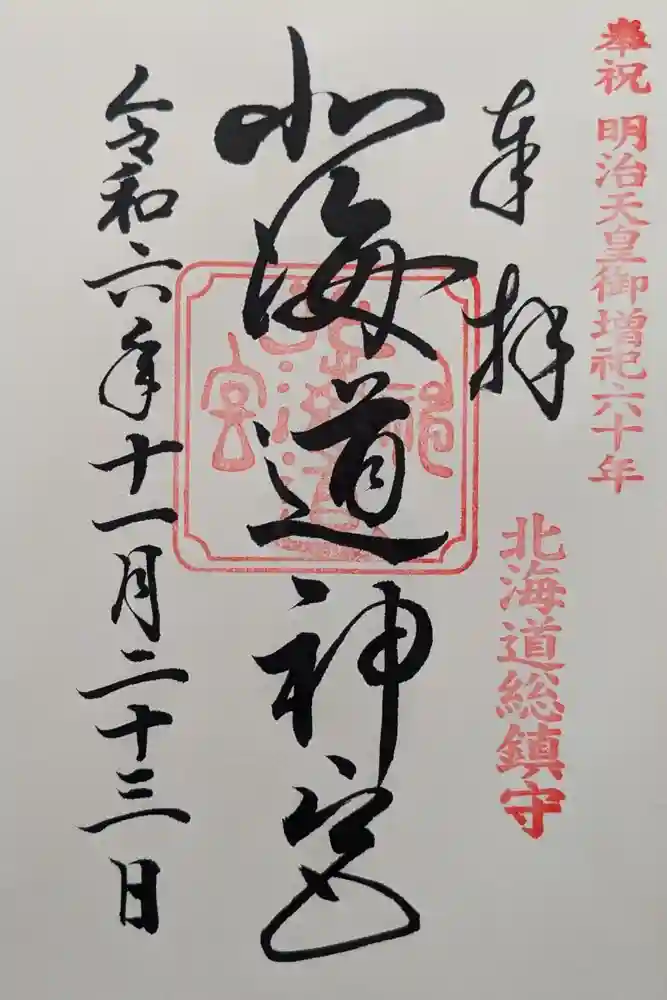 奉祝 明治天皇御増祀六十年
奉拝
北海道総鎮守
北海道神宮
北海道神宮
令和六年十一月二十三日